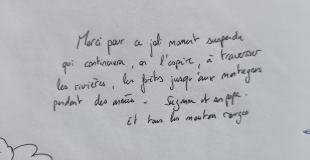 Merci pour ce joli moment suspendu
qui continuera, on l'espère, à traverser
les rivières, les forêts jusqu'aux montagnes
pendant des années - Suzanne et
Et tous les moutons rouges